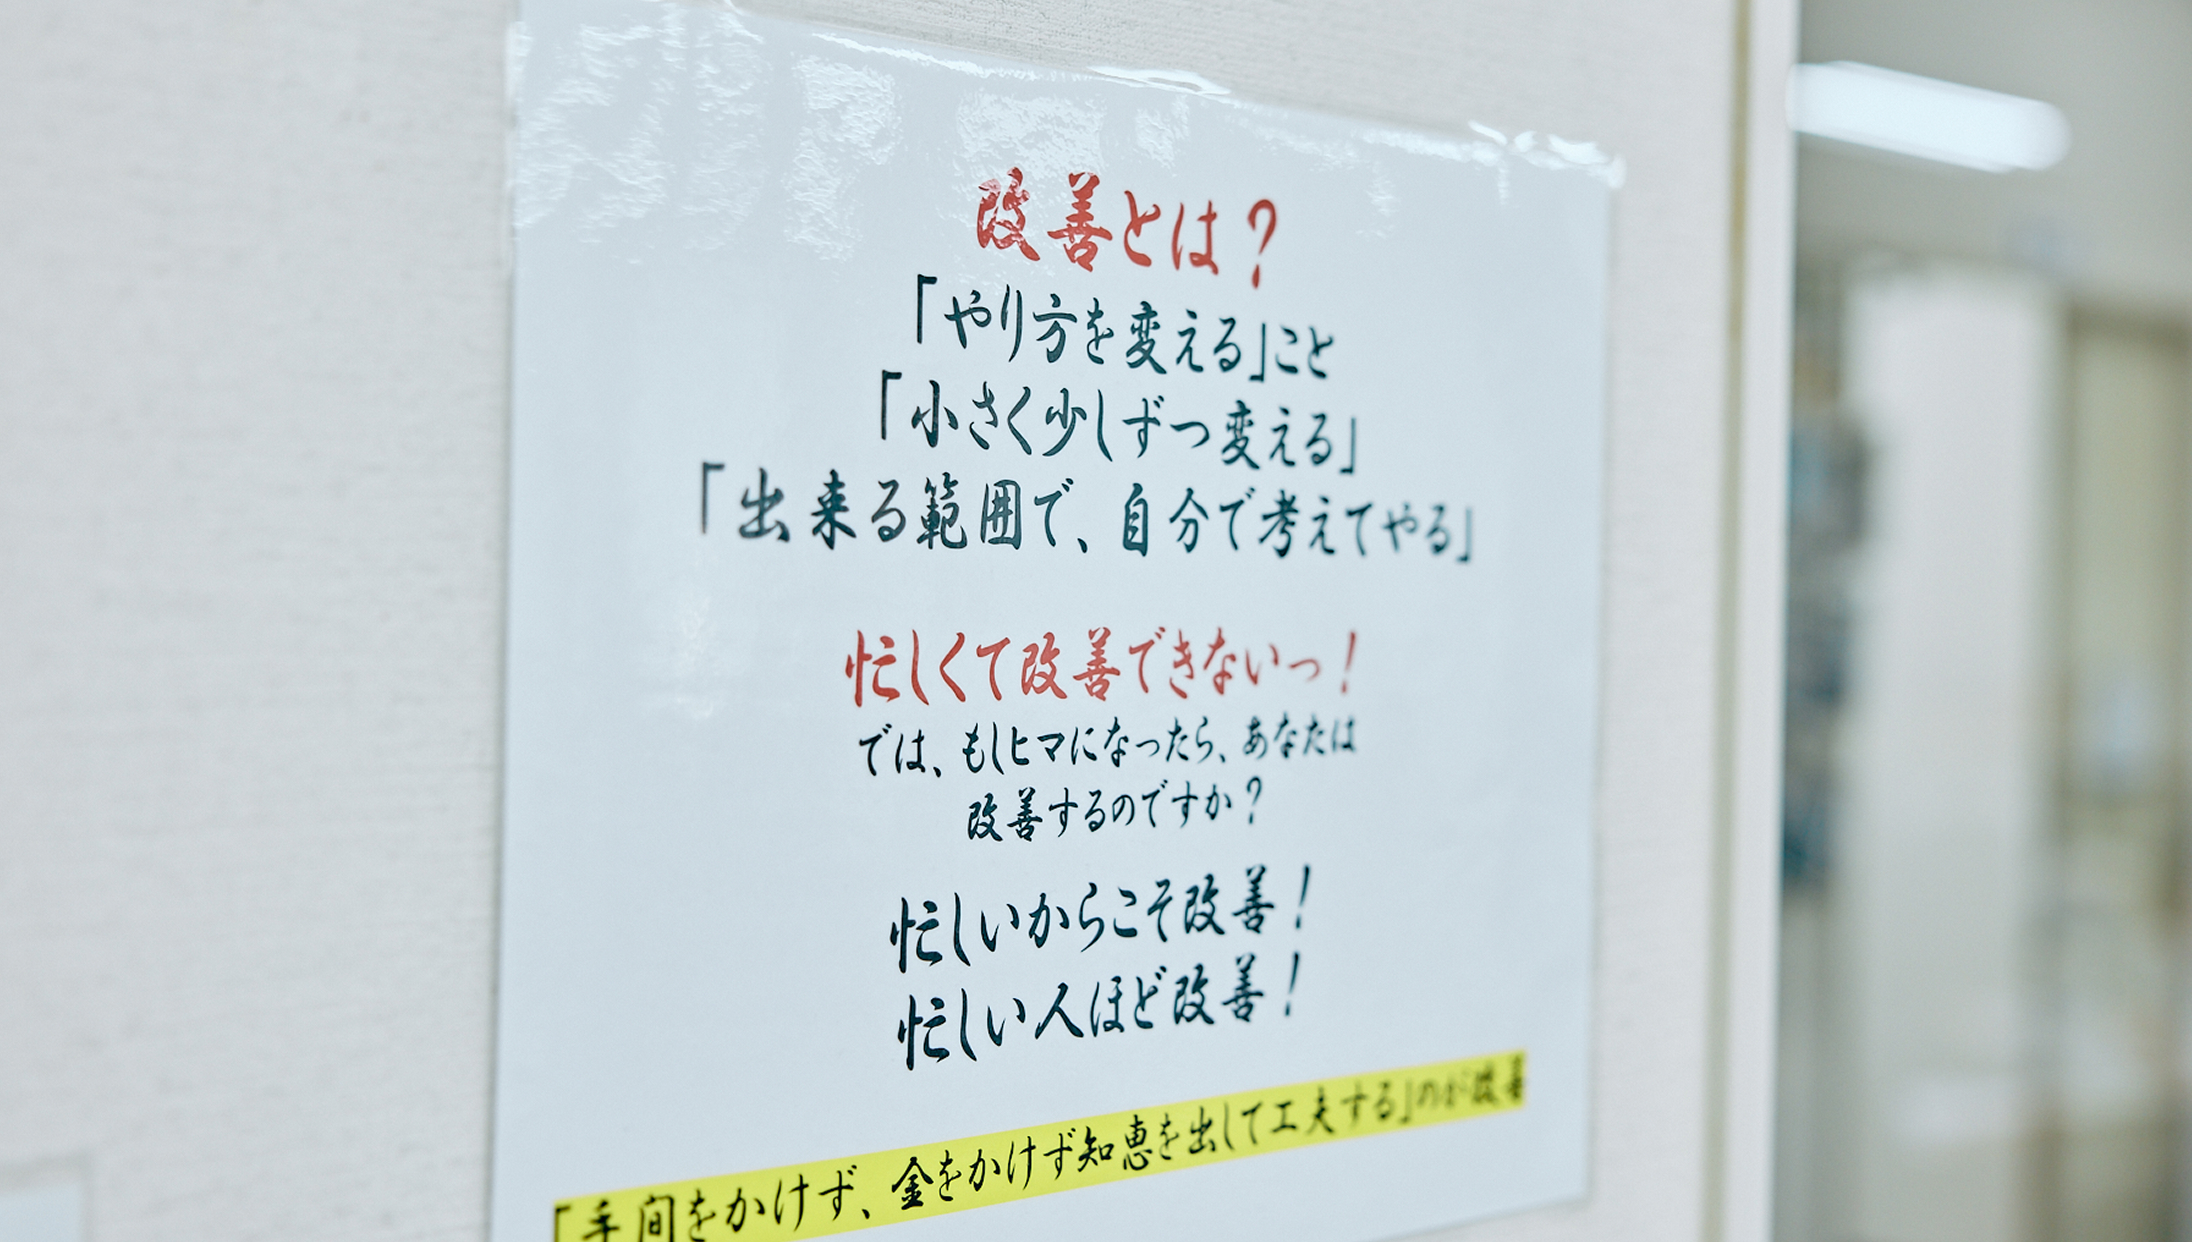 改善とは？
「やり方を変える」こと
「小さく少しずつ変える」
「出来る範囲で、自分で考えてやる」
忙しくて改善できないっ！
では、もしヒマになったら、あなたは
改善するのですか？
忙しいからこそ改善！
忙しい人ほど改善！
「手間をかけず、金をかけず知恵を出して工夫する」のが改善